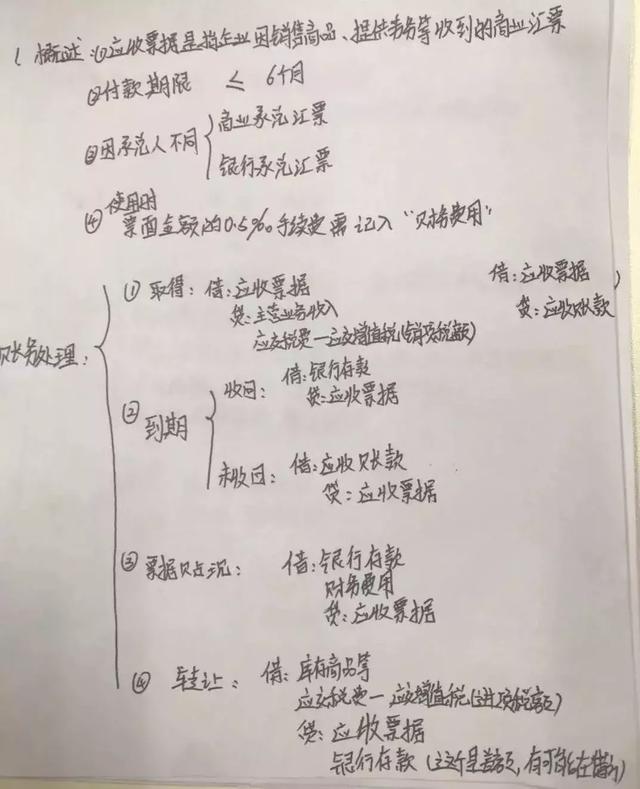 1. 概述:①应收票据是指企业因销售商品、提供劳务等收到的商业汇票
②付款期限 ≤ 6个月
③因承兑人不同
商业承兑汇票
银行承兑汇票
④使用时
票面金额的0.5‰手续费需记入“财务费用”
账务处理:
① 取得:借:应收票据
贷:主营业务收入
应交税费—应交增值税(销项税额)
借:应收票据
贷:应收账款
② 到期
收回:借:银行存款
贷:应收票据
未收回:借:应收账款
贷:应收票据
③ 票据贴现:借:银行存款
财务费用
贷:应收票据
④ 转让:借:库存商品等
应交税费—应交增值税(进项税额)
贷:应收票据
银行存款(这个是差额,有可能在借方)